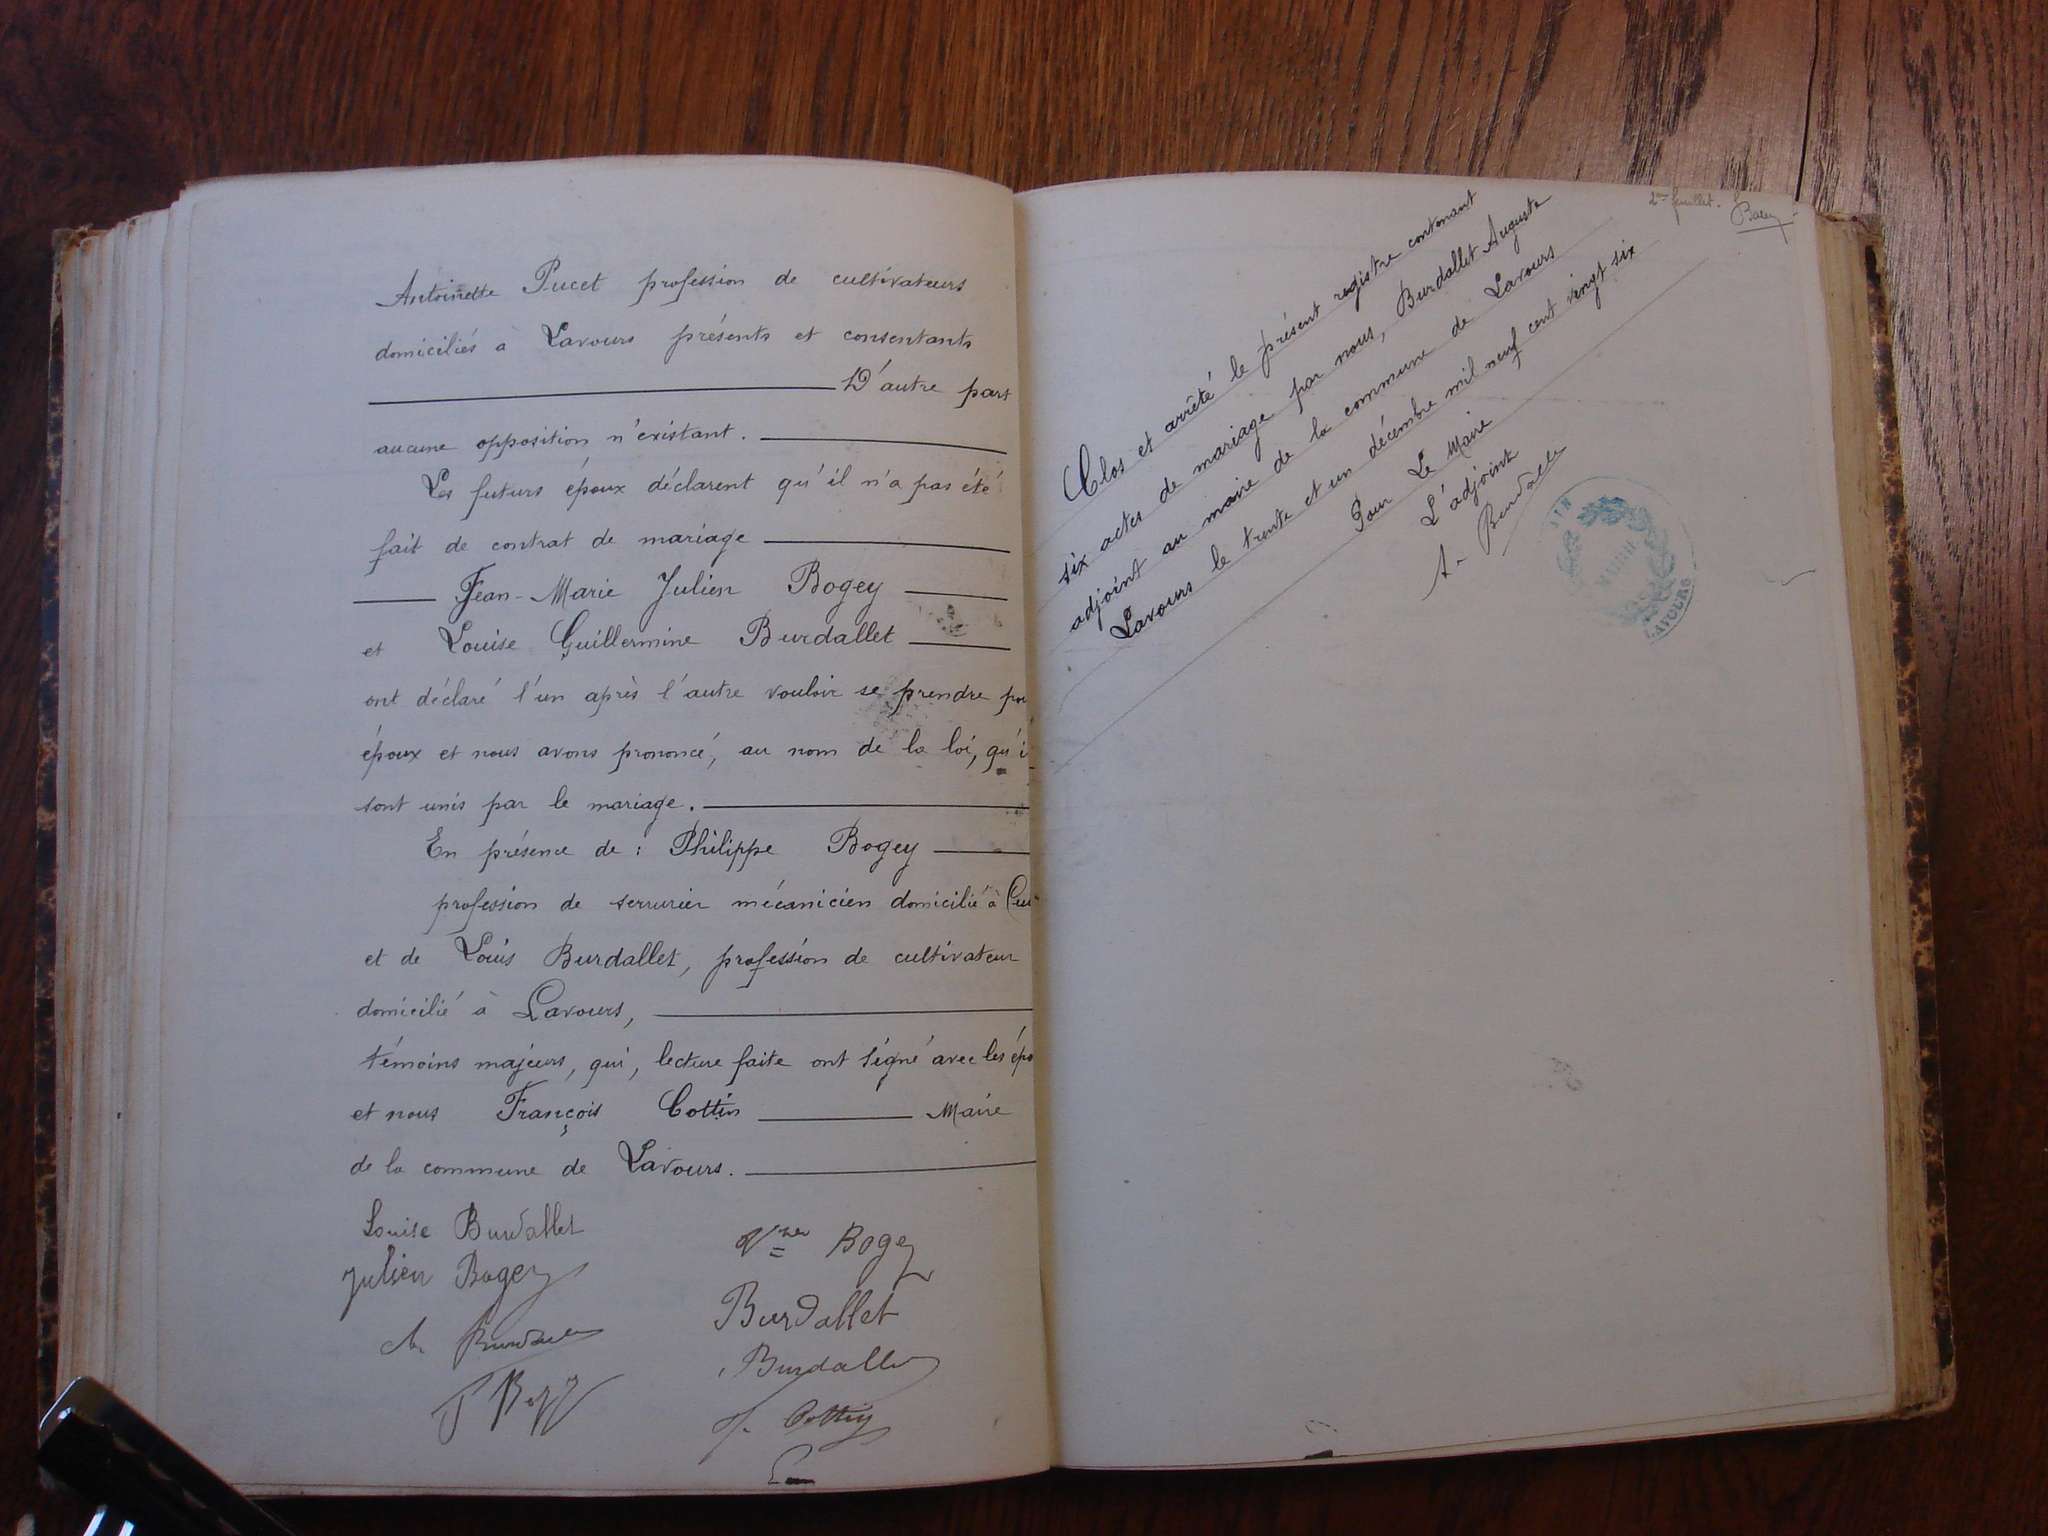 Antoinette Pucet profession de cultivateurs
domiciliés à Lavours présents et consentants
D'autre part
aucune opposition n'existant.
Les futurs époux déclarent qu'il n'a pas été
fait de contrat de mariage
Jean-Marie Julien Bogey
et Louise Guillermine Burdallet
ont déclaré l'un après l'autre vouloir se prendre pou
époux et nous avons prononcé, au nom de la loi, qu'i
sont unis par le mariage.
En présence de : Philippe Bogey
profession de serrurier mécanicien domicilié à
et de Louis Burdallet, profession de cultivateur
domicilié à Lavours,
témoins majeurs, qui, lecture faite ont signé avec les épo
et nous François Cottin Maire
de la commune de Lavours.
Louise Burdallet
Julien Bogey
Bogey
Burdallet
Burdallet
f. Cottin
2me feuillet.
Clos et arrêté le présent registre contenant
six actes de mariage par nous, Burdallet Auguste
adjoint au maire de la commune de Lavours
Lavours le trente et un décembre mil neuf cent vingt six
Pour Le Maire
L'adjoint
A. Burdallet
MAIRIE
LAVOURS
AIN